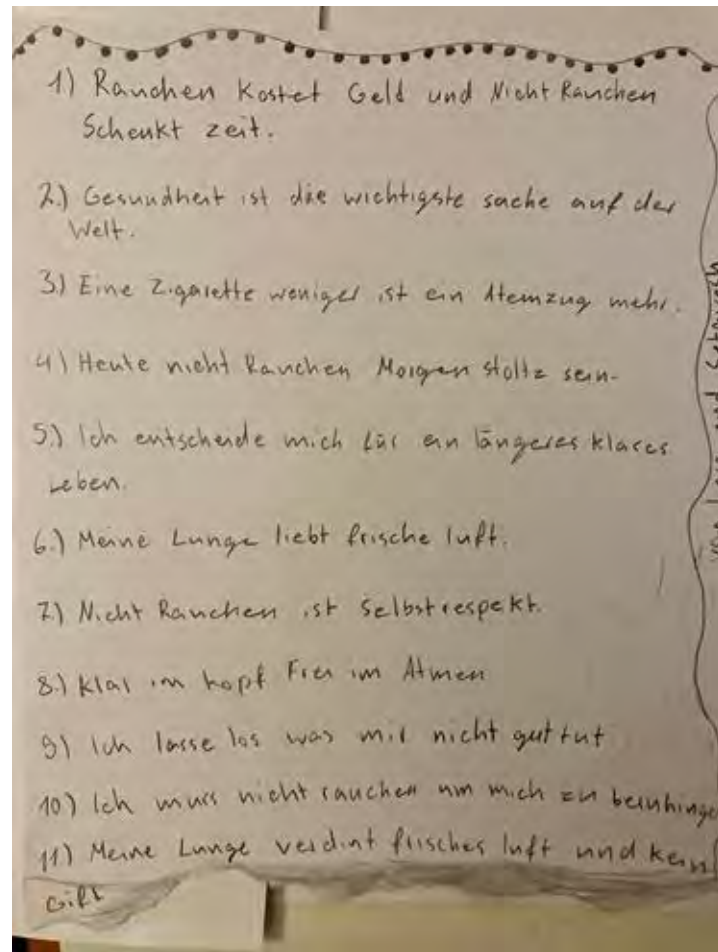 1) Rauchen Kostet Geld und Nicht Rauchen
Schenkt zeit.
2.) Gesundheit ist die wichtigste sache auf der
Welt.
3) Eine Zigarette weniger ist ein Atemzug mehr.
4) Heute nicht Rauchen Morgen stoltz sein.
5.) Ich entscheide mich für ein längeres klares
Leben.
6.) Meine Lunge liebt frische luft.
7.) Nicht Rauchen ist Selbstrespekt.
8.) Klar im kopf Frei im Atmen
9) Ich lasse los was mir nicht gut tut
10) Ich muss nicht rauchen um mich zu beruhinge
11) Meine Lunge verdint frisches luft und kein
Gift